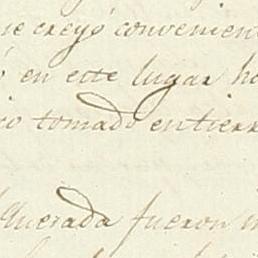 ue creyó convenien
ó en este lugar ha
cio tomado entierr
Querada fueron